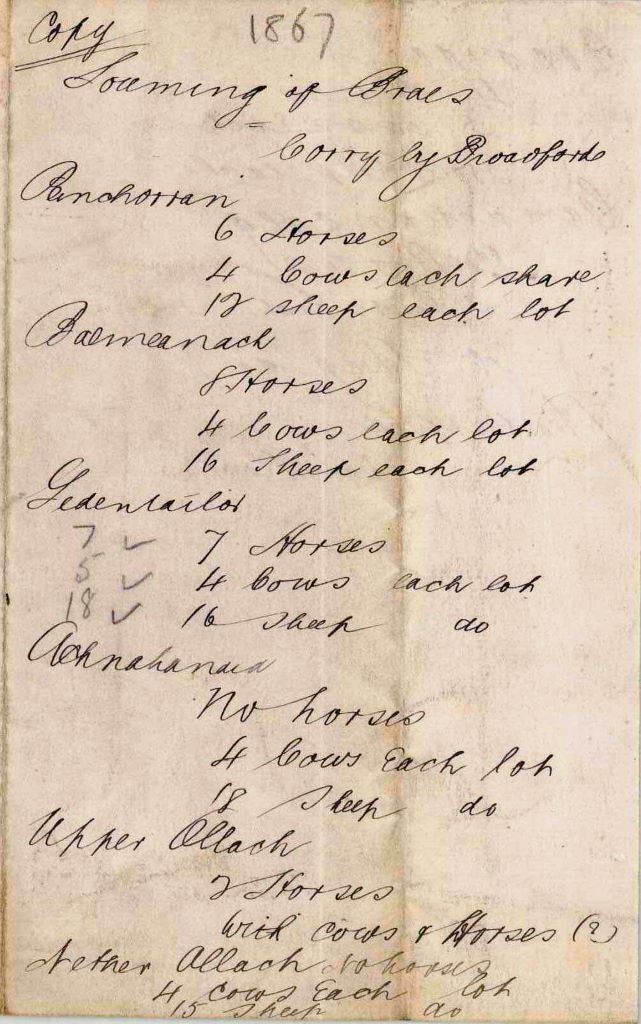 Copy 1867
Soeming of Braes
Corry by Broadford
Penchorran
6 Horses
4 Cows each share
12 sheep each lot
Balmeanach
8 Horses
4 Cows each lot
16 Sheep each lot
Gedentailor
7 ✓ 7 Horses
5 ✓ 4 Cows each lot
18 ✓ 16 Sheep do
Achnahanaid
No horses
4 Cows Each lot
18 Sheep do
Upper Ollach
2 Horses
With cows & Horses (?)
Nether Ollach No horses
4 cows Each lot
15 Sheep do